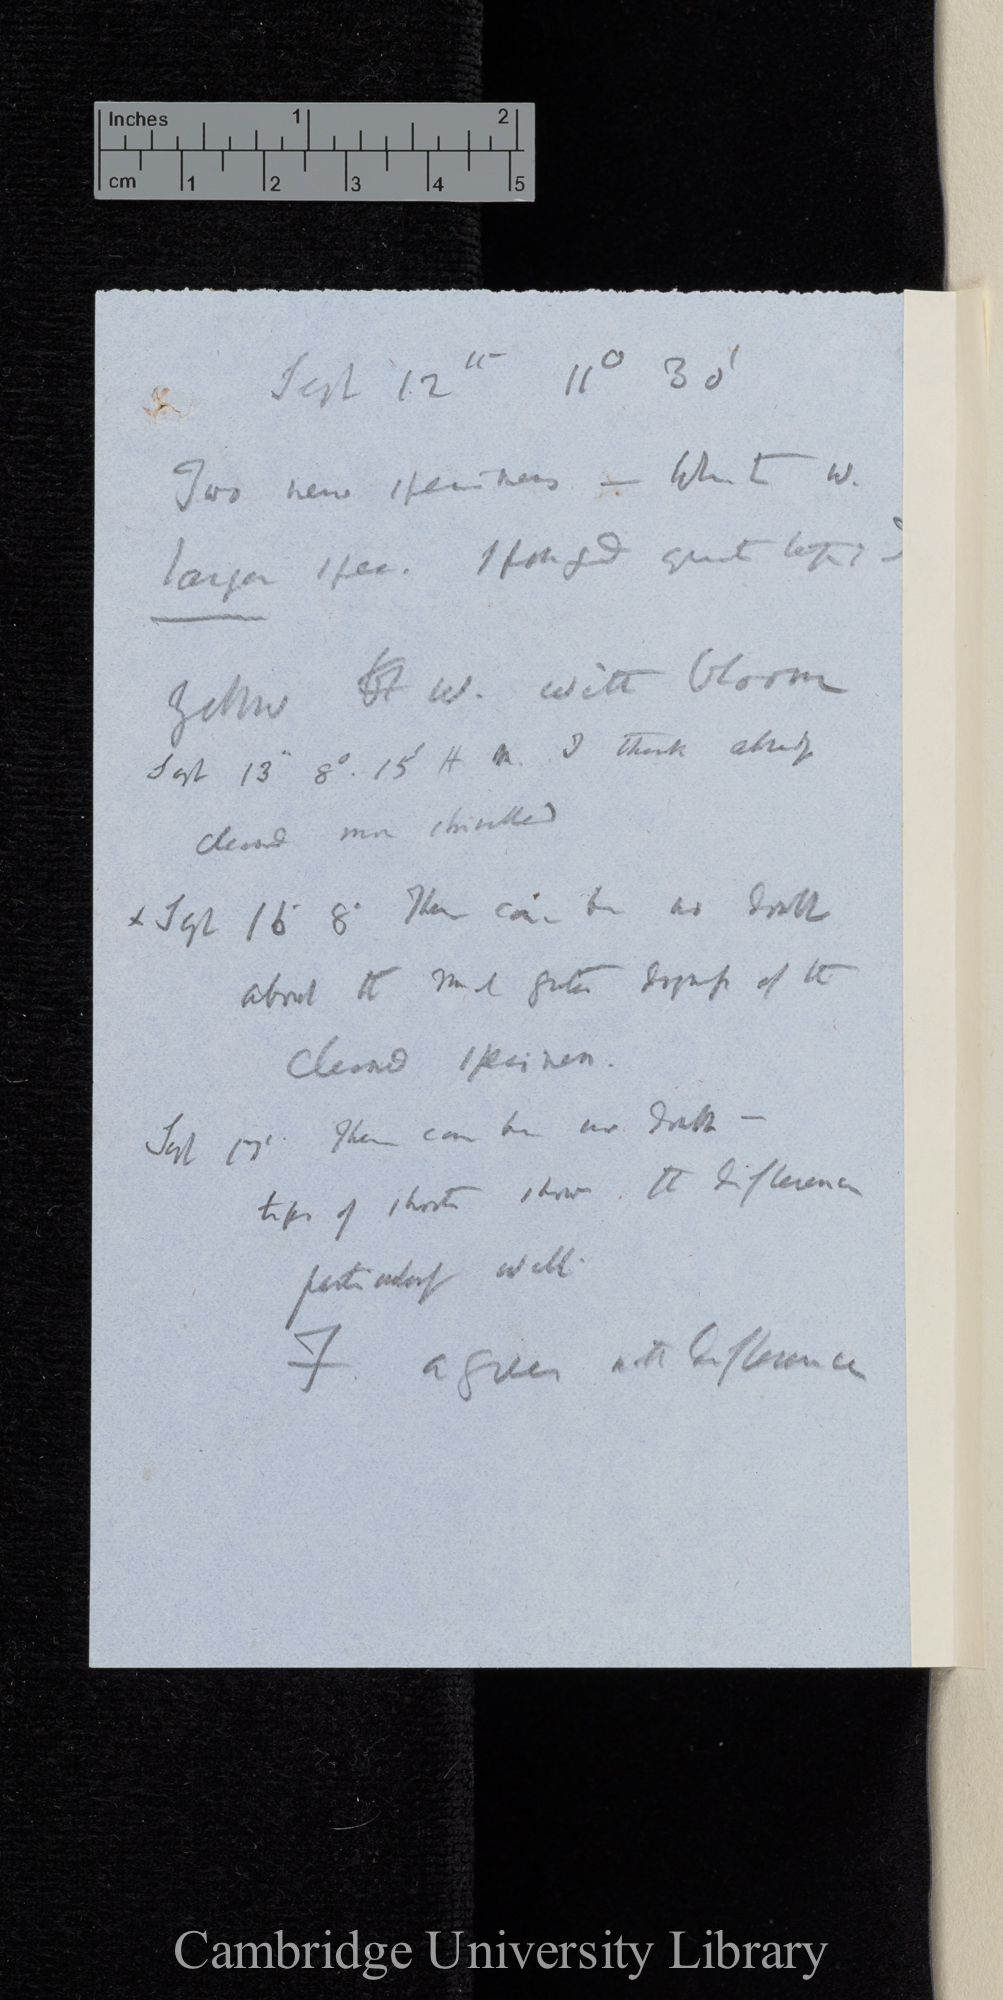 Inches 1 2
cm 1 2 3 4 5
Sept 12th 11° 30'
Two new specimens — White w.
larger spec. sponged quite
Yellow w. with bloom
Sept 13" 8°. 15' A. m. I think already
cleaned more shrivelled
x Sept 15 8° There can be no doubt
about the greater dryness of the
cleaned specimen.
Sept 17' There can be no doubt —
tips of shoots show the difference
particularly well.
F. agrees with difference
Cambridge University Library